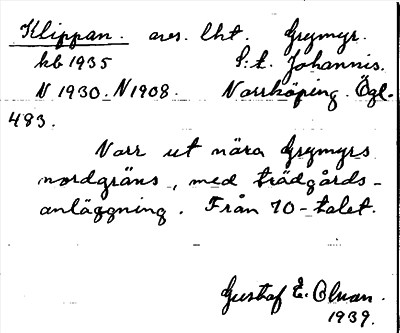 Klippan. avs. lht. Grymyr.
hb 1935 S:t. Johannis.
N 1930. N 1908. Norrköping. Ögl.
483.
Norr ut nära Grymyrs
nordgräns, med trädgårds-
anläggning. Från 10-talet.
Gustaf E. Olsson.
1939.